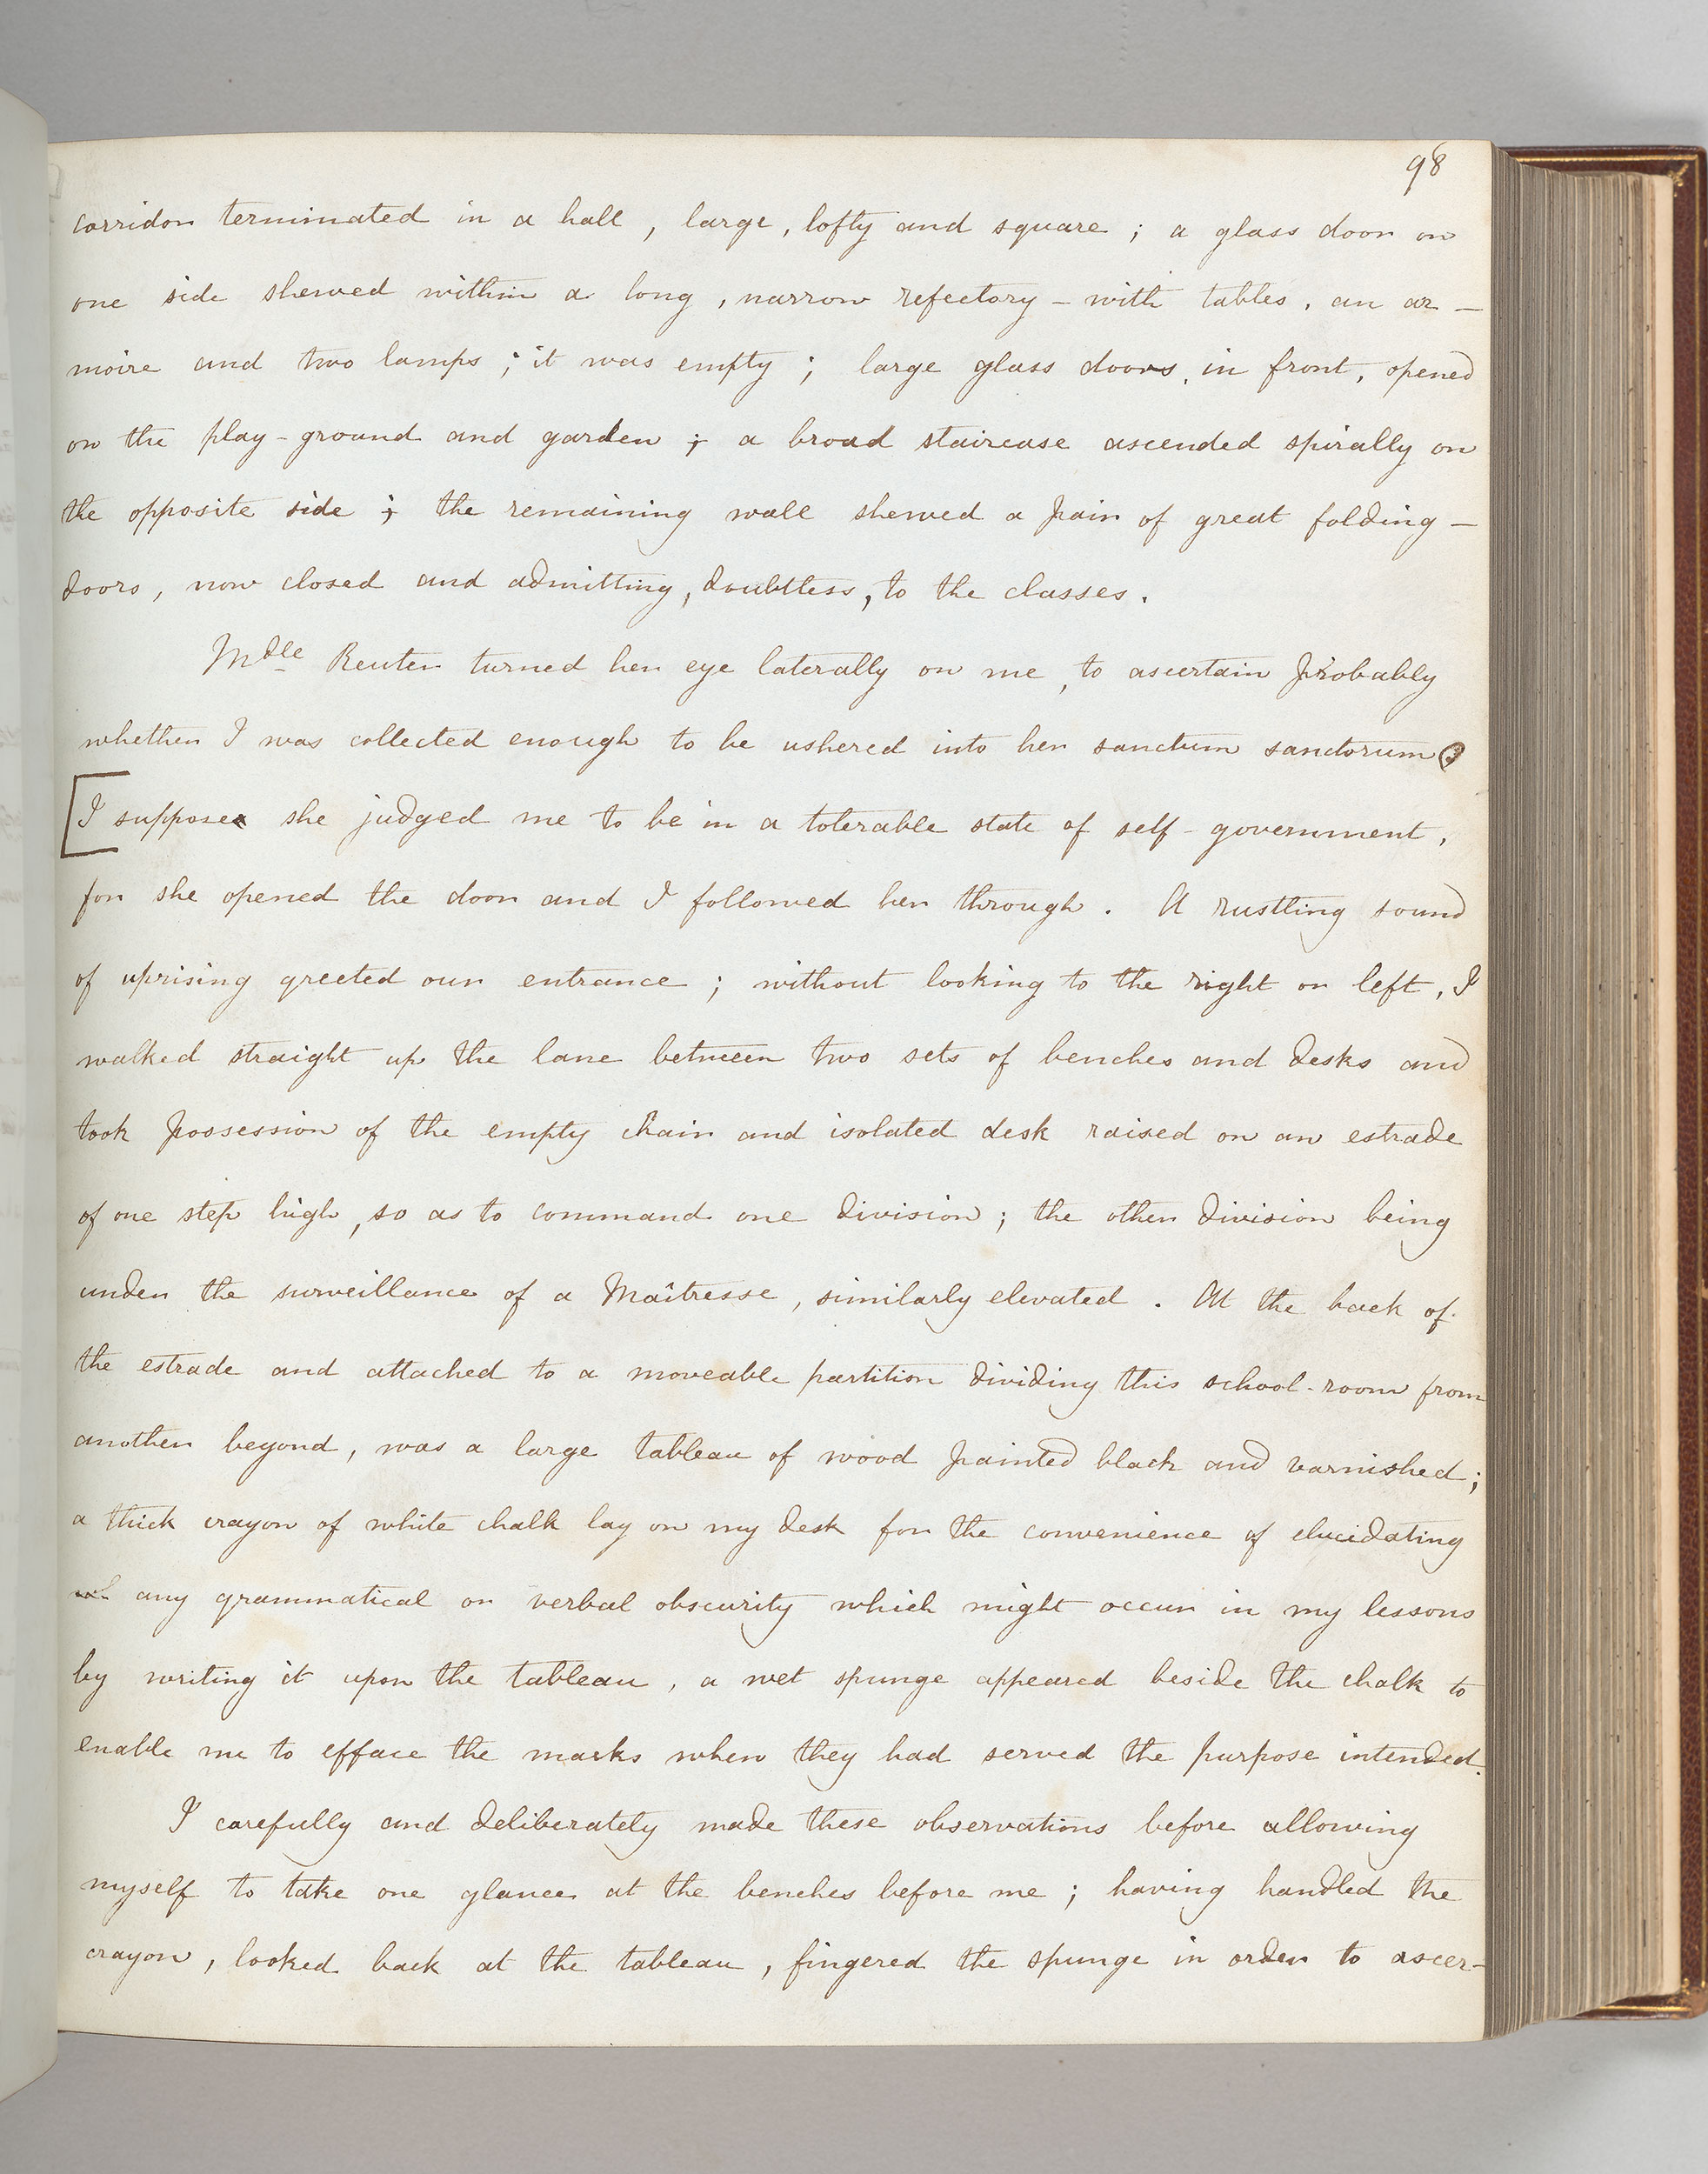 98
corridor terminated in a hall, large, lofty and square; a glass door on
one side shewed within a long, narrow refectory – with tables, an ar-
moire and two lamps; it was empty; large glass doors, in front, opened
on the play-ground and garden; a broad staircase ascended spirally on
the opposite side; the remaining wall shewed a pair of great folding-
doors, now closed and admitting, doubtless, to the classes.
Mdle Reuter turned her eye laterally on me, to ascertain probably
whether I was collected enough to be ushered into her sanctum sanctorum.
[I suppose she judged me to be in a tolerable state of self-government,
for she opened the door and I followed her through. A rustling sound
of uprising greeted our entrance; without looking to the right or left, I
walked straight up the lane between two sets of benches and desks and
took possession of the empty chair and isolated desk raised on an estrade
of one step high, so as to command one division; the other division being
under the surveillance of a Maîtresse, similarly elevated. At the back of
the estrade and attached to a moveable partition dividing this school-room from
another beyond, was a large tableau of wood painted black and varnished;
a thick crayon of white chalk lay on my desk for the convenience of elucidating
any grammatical or verbal obscurity which might occur in my lessons
by writing it upon the tableau, a wet spunge appeared beside the chalk to
enable me to efface the marks when they had served the purpose intended.
I carefully and deliberately made these observations before allowing
myself to take one glance at the benches before me; having handled the
crayon, looked back at the tableau, fingered the spunge in order to ascer-